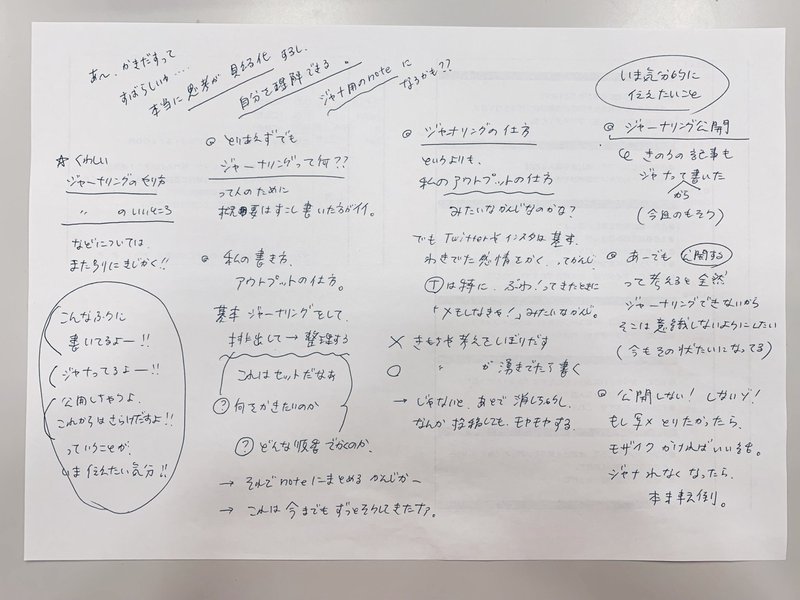 あ〜、かきだすって
すばらしいわ....
本当に思考が見える化するし、
自分を理解できる。
ジャナ用のnoteに
なるかも??
いま気分的に
伝えたいこと
☆ くわしい
ジャーナリングのやり方
〃 のいいところ
などについては、
また別にきじかく!!
こんなふうに
書いてるよー!!
ジャナってるよー!!
公開しちゃうよ、
これからはさらけだすよ!!
っていうことが、
いま伝えたい気分!!
とりまえずでも
ジャーナリングって何??
って人のために
概要はすこし書いた方がイイ。
私の書き方、
アウトプットの仕方。
基本ジャーナリングをして、
排出して→整理する
これはセットだなあ
? 何をかきたいのか
? どんな順番でかくのか、
→ それでnoteにまとめるかんじかー
→ これは今までもずっとそうしてきたナァ。
ジャナリングの仕方
というよりも、
私のアウトプットの仕方
みたいなかんじなのかな?
でもTwitterやインスタは基本、
わきでた感情をかく、ってかんじ、
Tは特に、ぶわ!ってきたときに
「メモしなきゃ!」みたいなかんじ。
× きもちや考えをしぼりだす
○ 〃 が湧きでたら書く
→ じゃないと、あとで消しちゃうし、
なんか投稿しても、モヤモヤする、
ジャーナリング公開
きのうの記事も
ジャナって書いた
から
(今回のもそう)
あーでも公開する
って考えると全然
ジャーナリングできないから
そこは意識しないようにしたい
(今もその状たいになってる)
公開しない!しないゾ!
もし写メとりたかったら、
モザイクかければいいっしょ。
ジャナれなくなったら、
本末転倒。